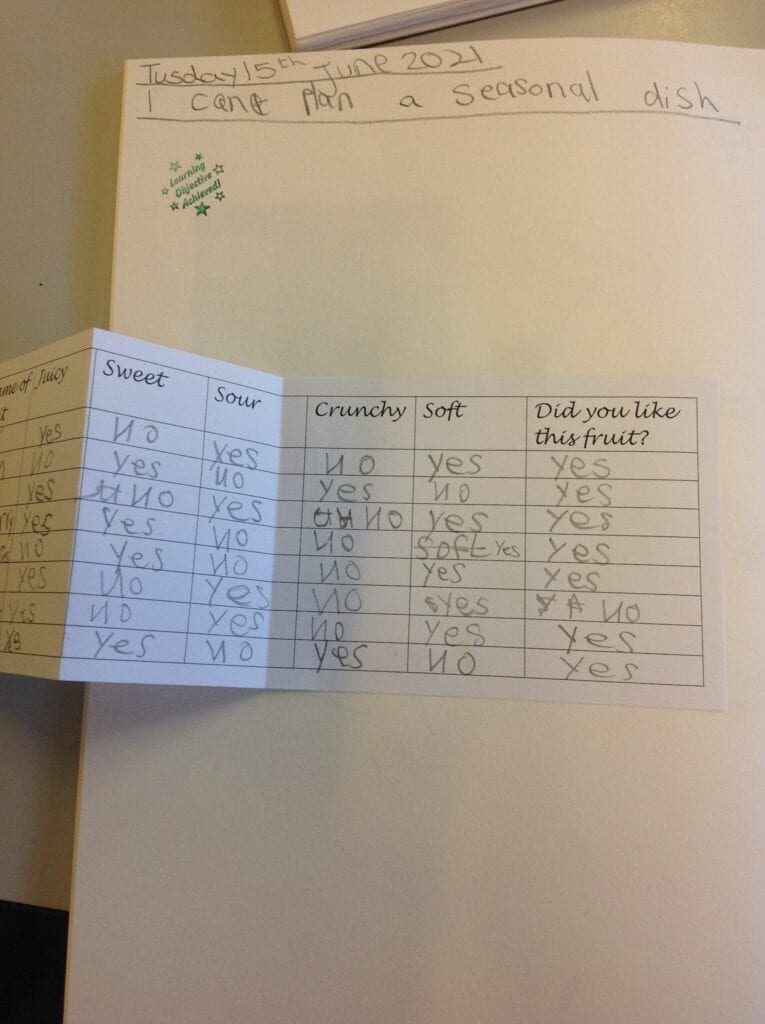 Tusday 15th June 2021
I can plan a seasonal dish
Learning
Objective
Achieved!
of Juicy Sweet Sour Crunchy Soft Did you like
this fruit?
yes no yes no yes yes
no yes no yes no yes
yes no yes no yes yes
yes yes no no soft yes yes
no yes no no yes yes
yes no yes no yes no
yes no yes no yes yes
yes yes no yes no yes